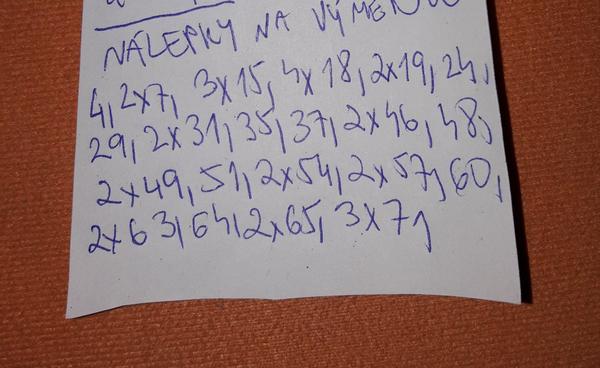 NÁLEPKY NA VÝMENU
4, 2x7, 3x15, 4x18, 2x19, 24,
29, 2x31, 35, 37, 2x46, 48,
2x49, 51, 2x54, 2x57, 60,
2x63, 64, 2x65, 3x7,